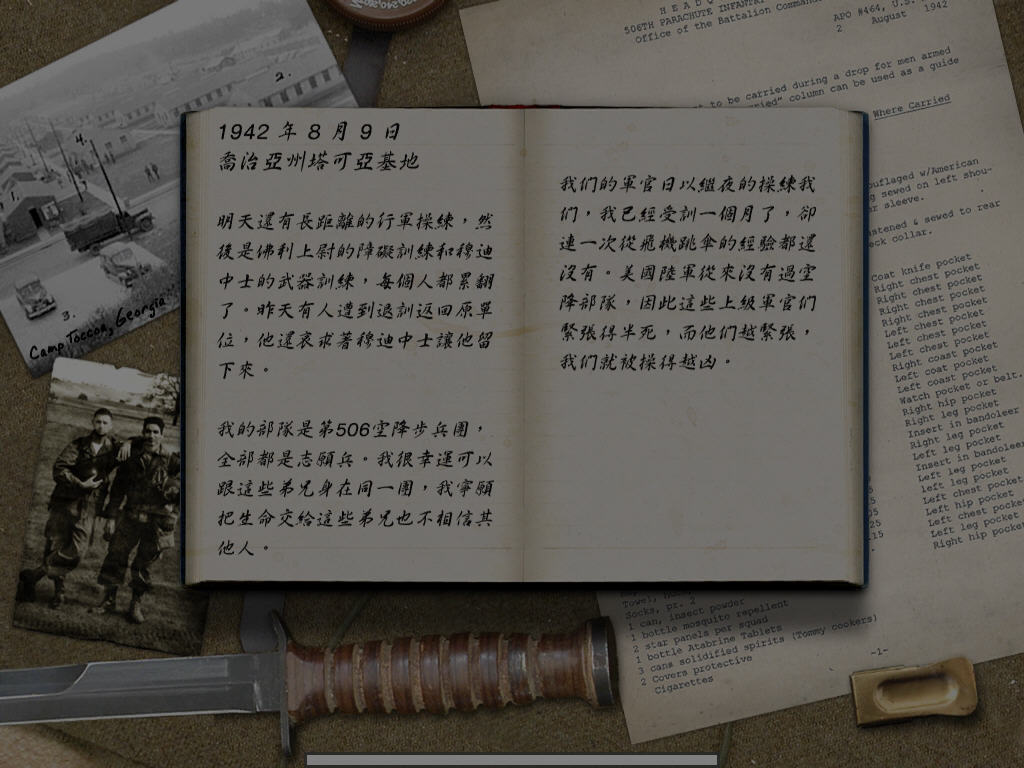 1942 年 8 月 9 日
喬治亞州塔可亞基地
明天還有長距離的行軍操練，然
後是佛利上尉的障礙訓練和穆迪
中士的武器訓練，每個人都累翻
了。昨天有人遭到退訓返回原單
位，他還哀求著穆迪中士讓他留
下來。
我的部隊是第506空降步兵團，
全部都是志願兵。我很幸運可以
跟這些弟兄身在同一團，我寧願
把生命交給這些弟兄也不相信其
他人。
我们的軍官日以繼夜的操練我
们，我已經受訓一個月了，卻
連一次從飛機跳傘的經驗都還
沒有。美國陸軍從來沒有過空
降部隊，因此這些上級軍官们
緊張得半死，而他们越緊張，
我们就被操得越凶。
2.
4.
3.
Camp Toccoa, Georgia
H E A D Q
506TH PARACHUTE INFANTRY
Office of the Battalion Command
APO #464, U.S.
2 August 1942
to be carried during a drop for men armed
column can be used as a guide
Where Carried
ouflaged w/American
g sewed on left shou-
er sleeve.
astened & sewed to rear
eck collar.
Coat knife pocket
Right chest pocket
Right chest pocket
Left chest pocket
Left chest pocket
Left chest pocket
Left chest pocket
Right coast pocket
Left coat pocket
Left coast pocket
Watch pocket or belt.
Right hip pocket
Right leg pocket
Insert in bandoleer
Right leg pocket
Left leg pocket
Insert in bandoleer
Left leg pocket
left leg pocket
Left chest pocket
Left hip pocket
Left chest pocket
Left leg pocket
Right hip pocket
Towel,
Socks, pr. 2
1 can, insect powder
1 bottle mosquito repellent
2 star panels per squad
1 bottle Atabrine Tablets
3 cans solidified spirits (Tommy cookers)
2 Covers protective
Cigarettes
-1-